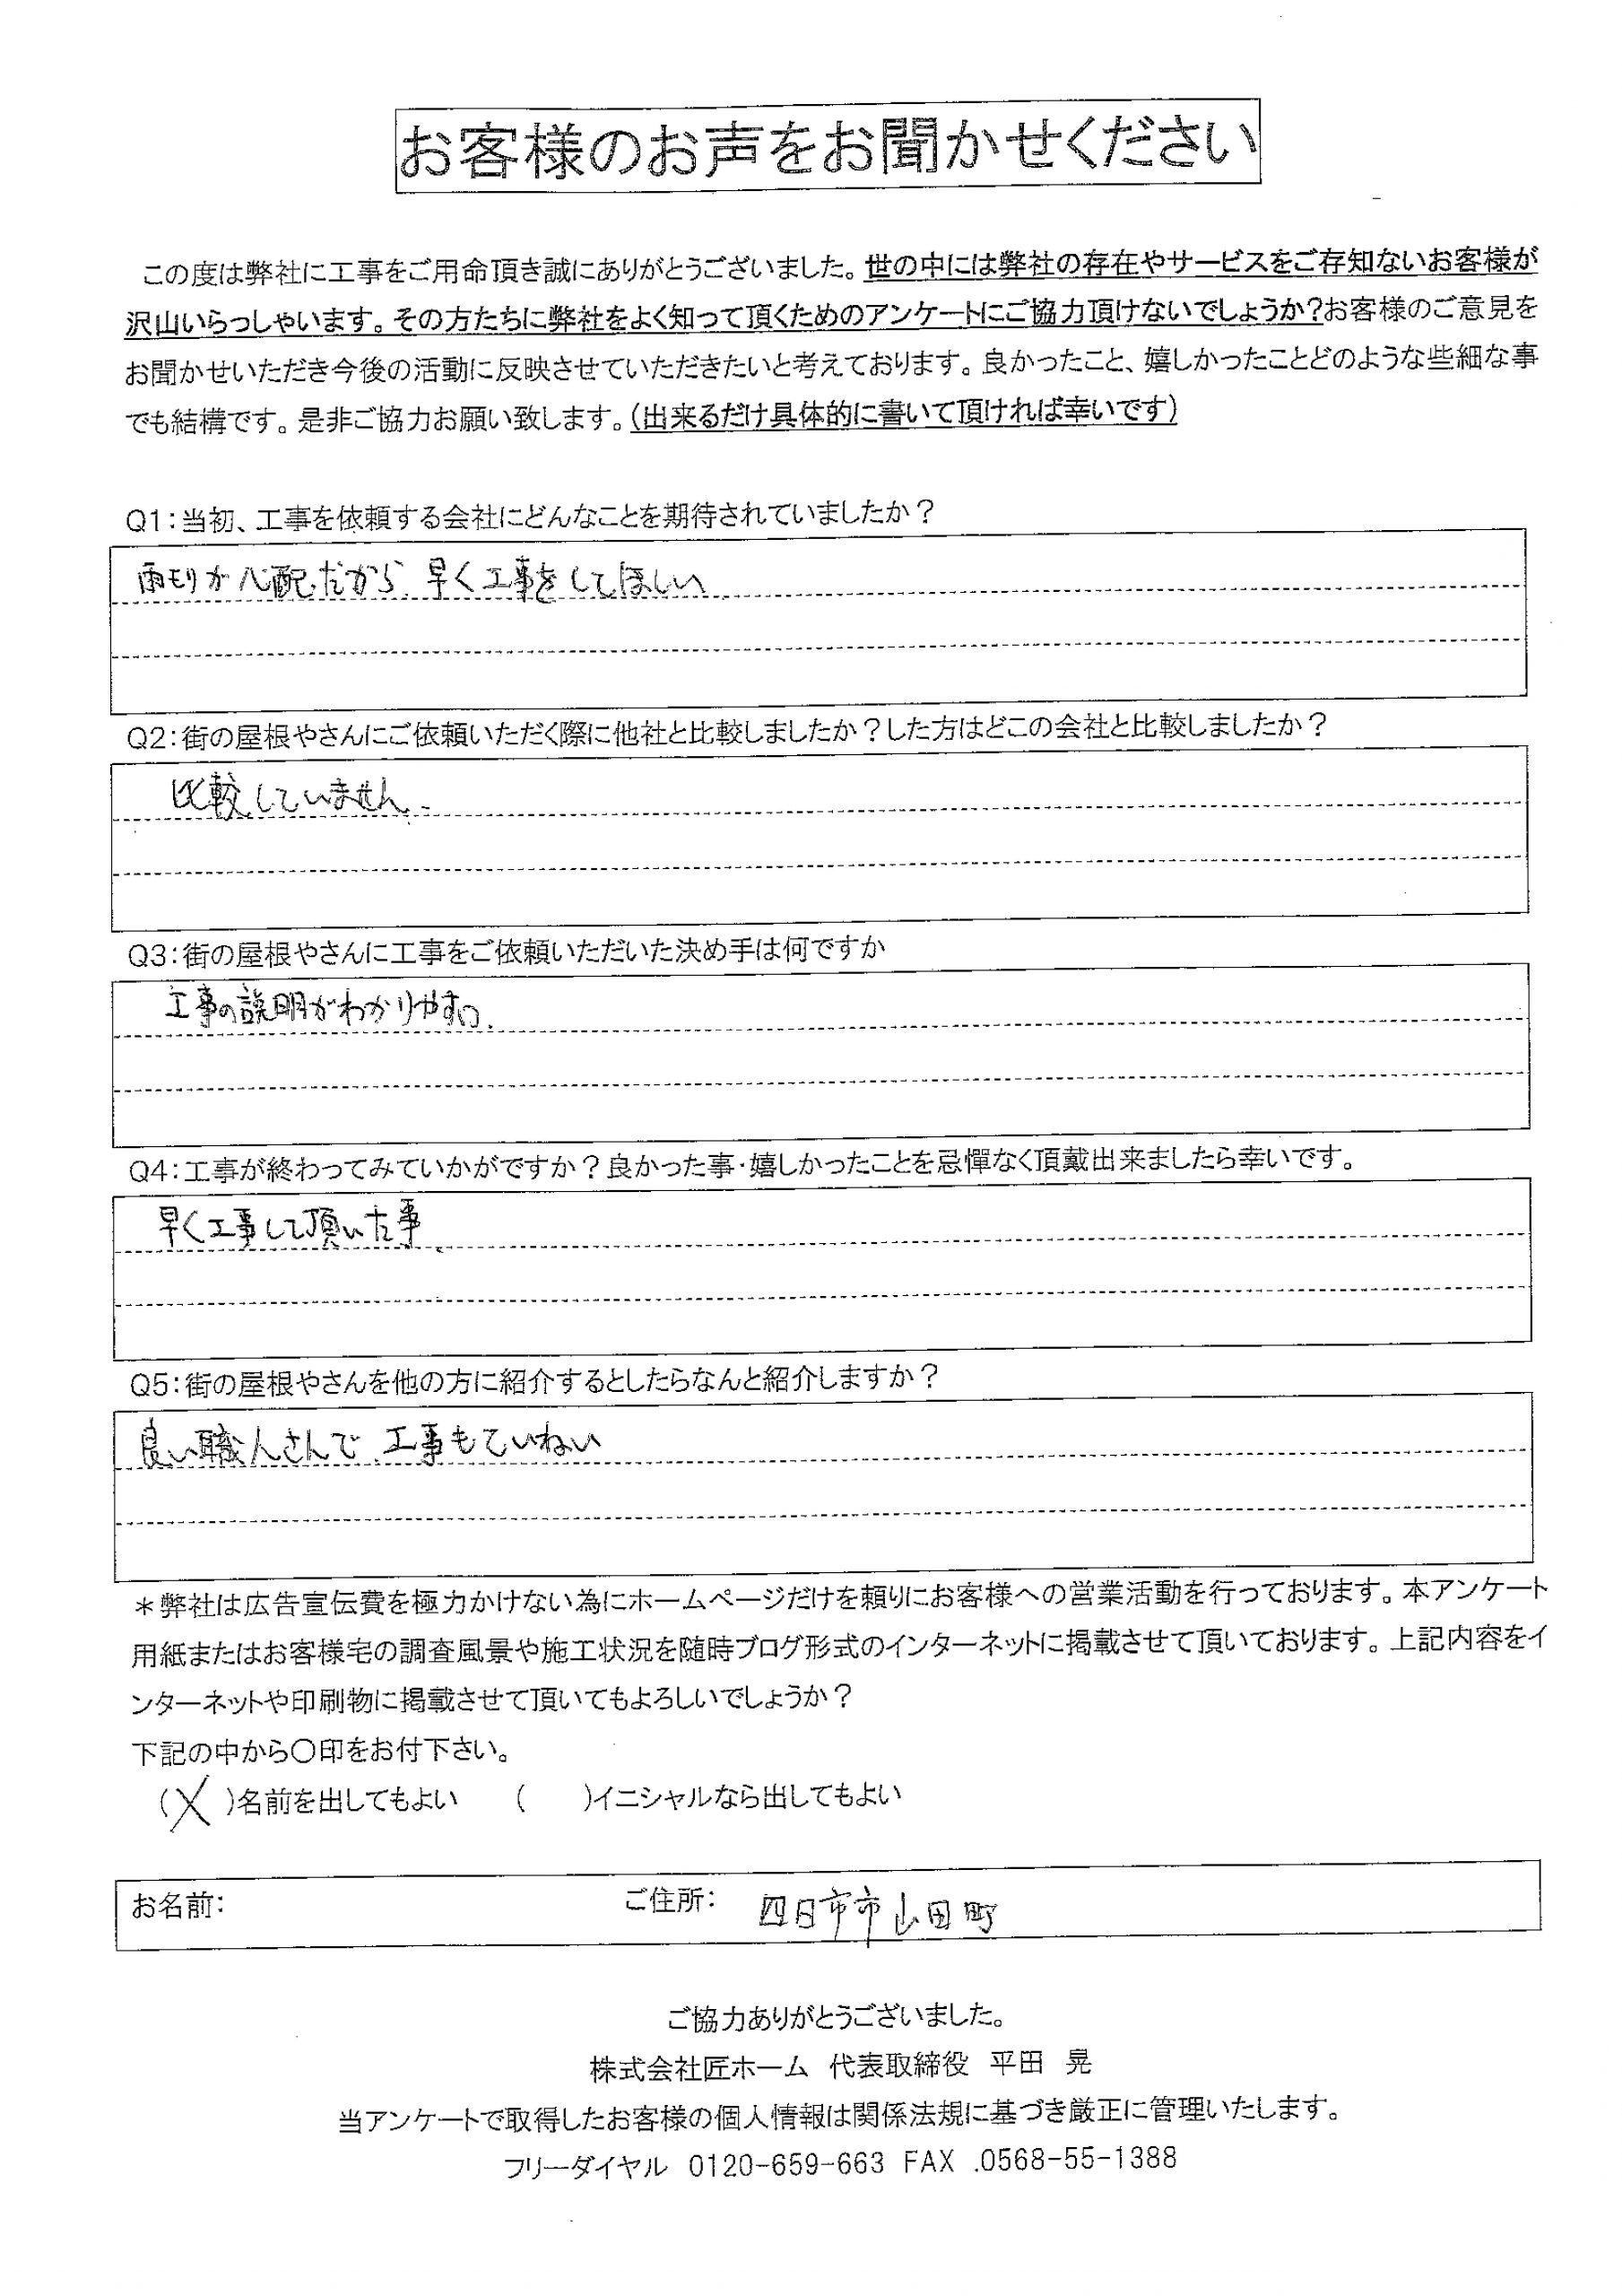 お客様のお声をお聞かせください
この度は弊社に工事をご用命頂き誠にありがとうございました。世の中には弊社の存在やサービスをご存知ないお客様が
沢山いらっしゃいます。その方たちに弊社をよく知って頂くためのアンケートにご協力頂けないでしょうか?お客様のご意見を
お聞かせいただき今後の活動に反映させていただきたいと考えております。良かったこと、嬉しかったことどのような些細な事
でも結構です。是非ご協力お願い致します。(出来るだけ具体的に書いて頂ければ幸いです)
Q1:当初、工事を依頼する会社にどんなことを期待されていましたか?
雨モリが心配だから、早く工事をしてほしい
Q2:街の屋根やさんにご依頼いただく際に他社と比較しましたか?した方はどこの会社と比較しましたか?
比較していません。
Q3:街の屋根やさんに工事をご依頼いただいた決め手は何ですか
工事の説明がわかりやすい。
Q4:工事が終わってみていかがですか?良かった事・嬉しかったことを忌憚なく頂戴出来ましたら幸いです。
早く工事して頂いた事、
Q5:街の屋根やさんを他の方に紹介するとしたらなんと紹介しますか?
良い職人さんで、工事もていねい
*弊社は広告宣伝費を極力かけない為にホームページだけを頼りにお客様への営業活動を行っております。本アンケート
用紙またはお客様宅の調査風景や施工状況を随時ブログ形式のインターネットに掲載させて頂いております。上記内容をイ
ンターネットや印刷物に掲載させて頂いてもよろしいでしょうか?
下記の中から〇印をお付下さい。
(X)名前を出してもよい ( )イニシャルなら出してもよい
お名前: ご住所: 四日市市山田町
ご協力ありがとうございました。
株式会社匠ホーム 代表取締役 平田 晃
当アンケートで取得したお客様の個人情報は関係法規に基づき厳正に管理いたします。
フリーダイヤル 0120-659-663 FAX .0568-55-1388